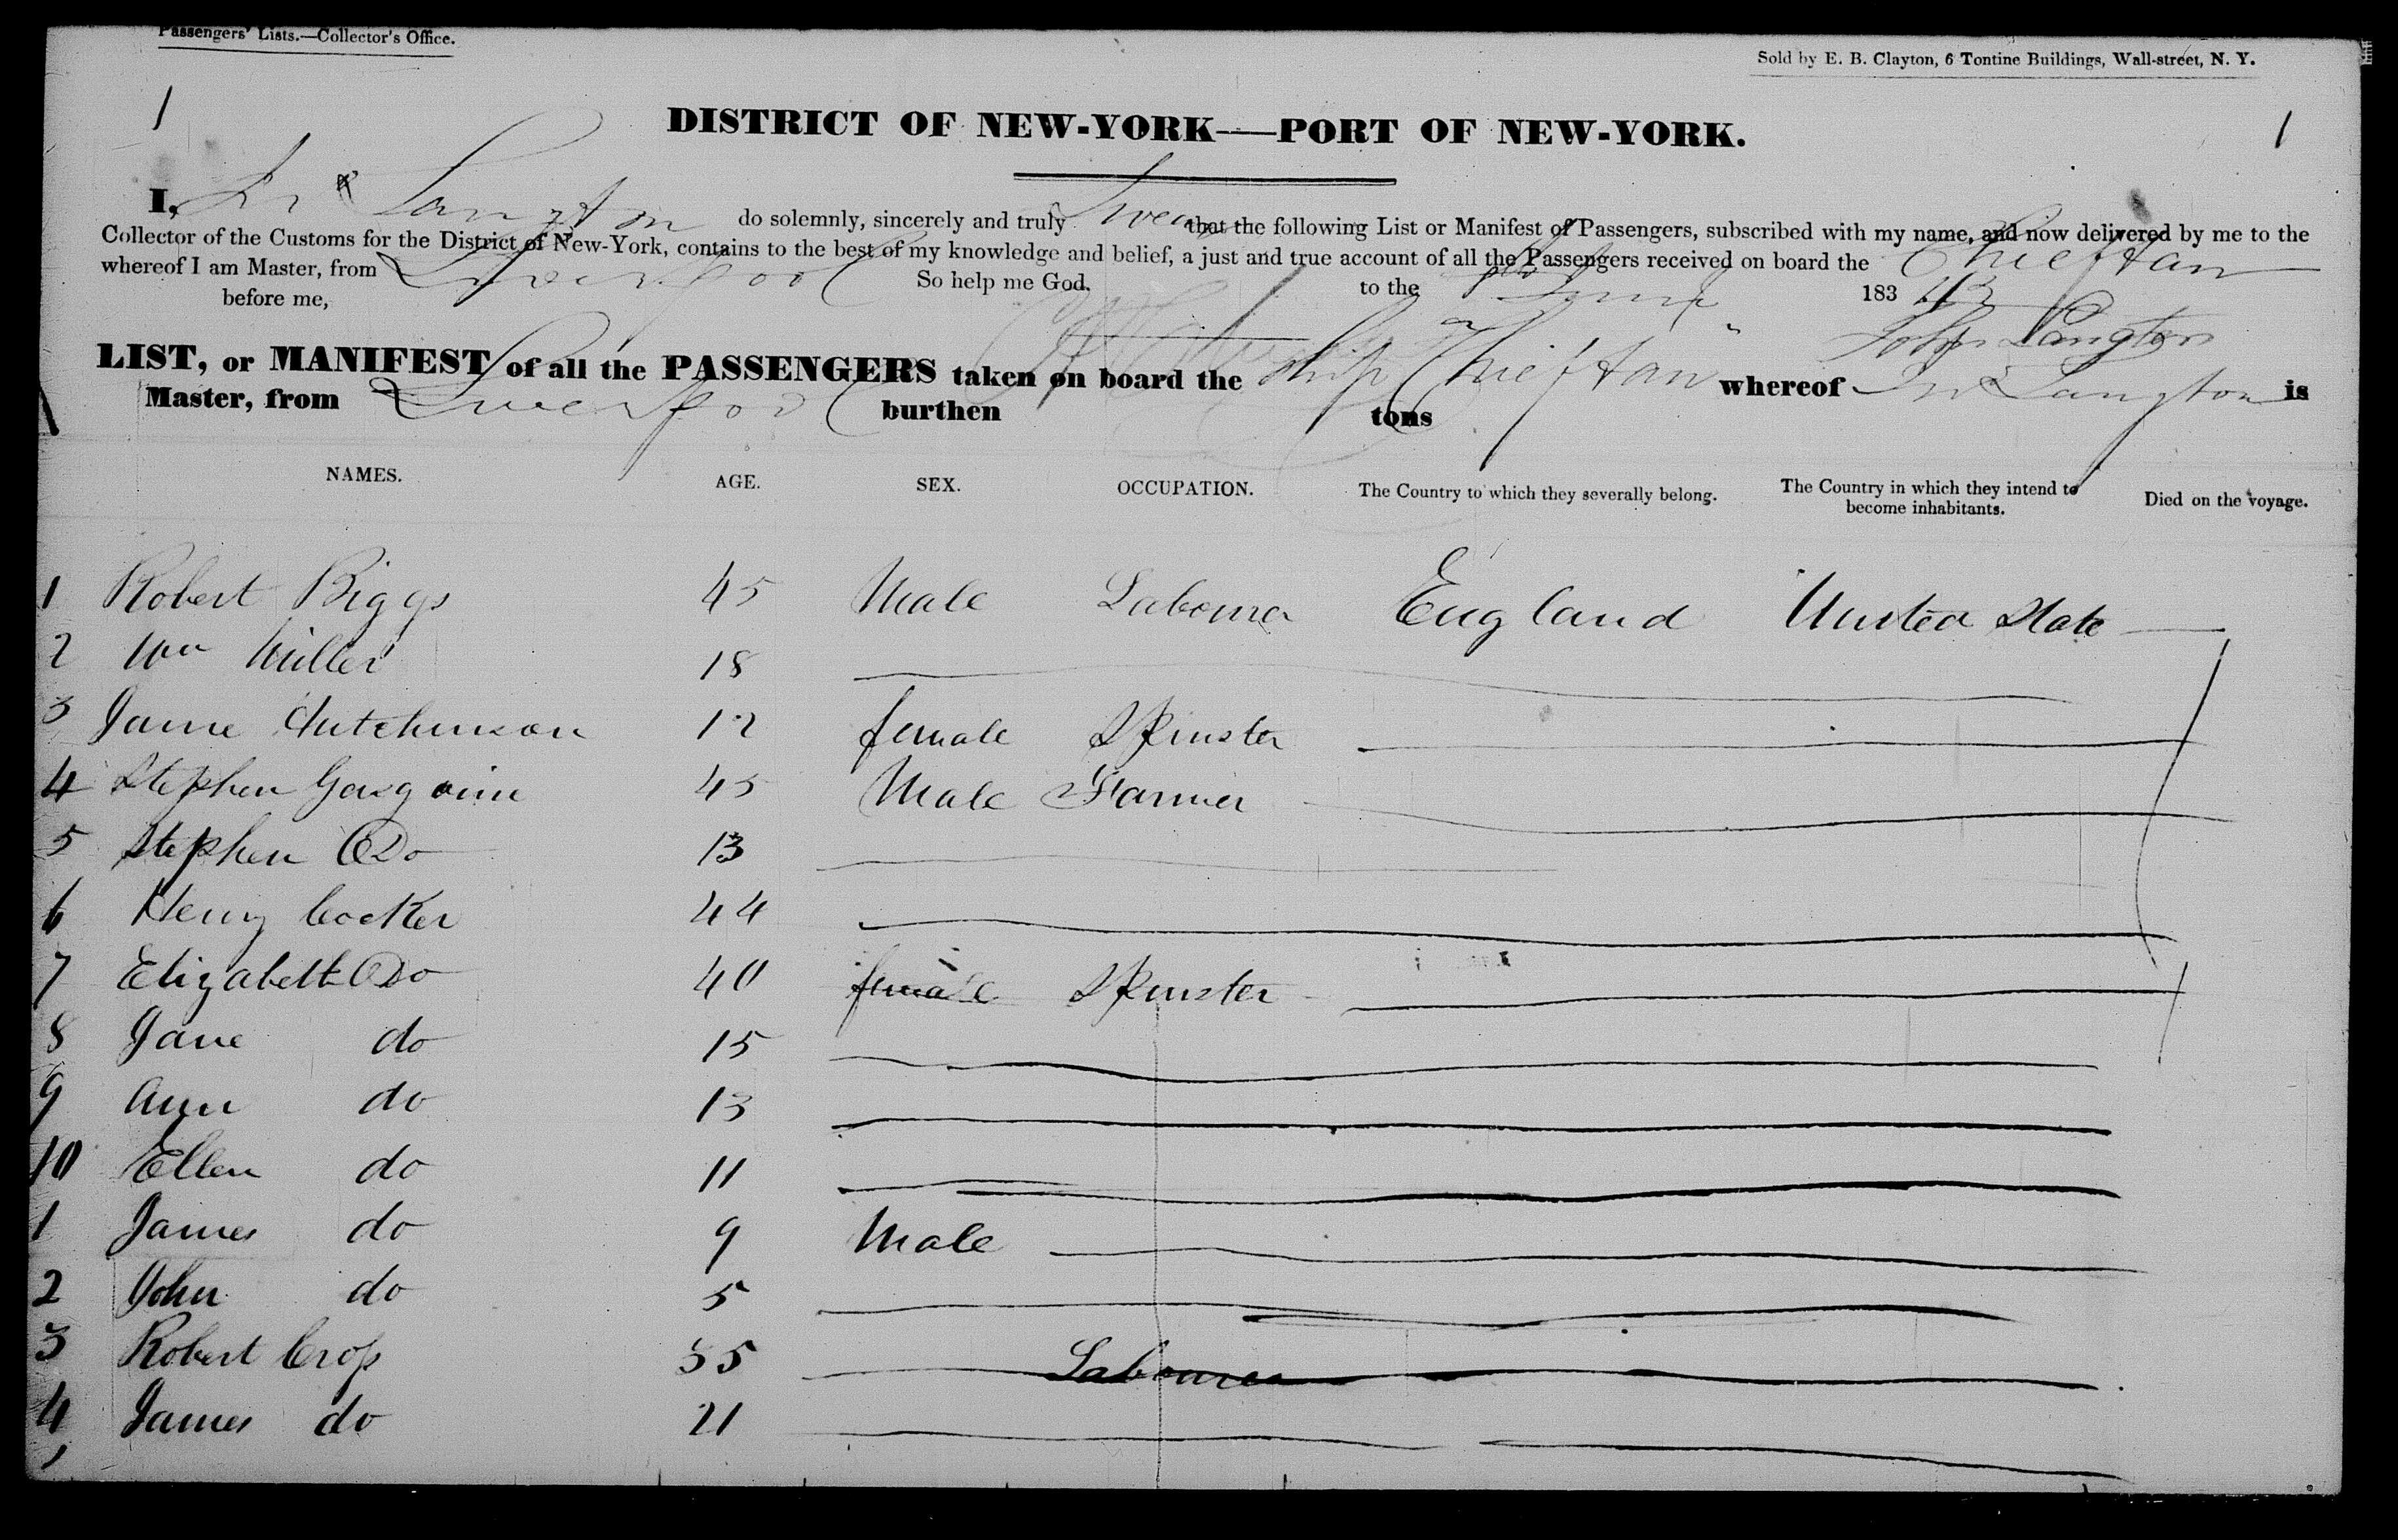 Passengers' Lists.—Collector's Office.
Sold by E. B. Clayton, 6 Tontine Buildings, Wall-street, N. Y.
1 1
DISTRICT OF NEW-YORK—PORT OF NEW-YORK.
I, Langton do solemnly, sincerely and truly Swear that the following List or Manifest of Passengers, subscribed with my name, and now delivered by me to the
Collector of the Customs for the District of New-York, contains to the best of my knowledge and belief, a just and true account of all the Passengers received on board the Chieftan
whereof I am Master, from Liverpool So help me God. to the 183
before me, John Langton
LIST, or MANIFEST of all the PASSENGERS taken on board the Ship Chieftan whereof Jn Langton is
Master, from Liverpool burthen tons
NAMES. AGE. SEX. OCCUPATION. The Country to which they severally belong. The Country in which they intend to become inhabitants. Died on the voyage.
1 Robert Biggs 45 Male Labourer England United State
2 Wm Miller 18
3 Jame Hutchinson 12 female Spinster
4 Stephen Gasgoine 45 Male Farmer
5 Stephen Do 13
6 Henry Cocker 44
7 Elizabeth Do 40 female Spinster
8 Jane do 15
9 Ann do 13
10 Ellen do 11
1 James do 9 Male
2 John do 5
3 Robert Crop 35 Labourer
4 James do 21